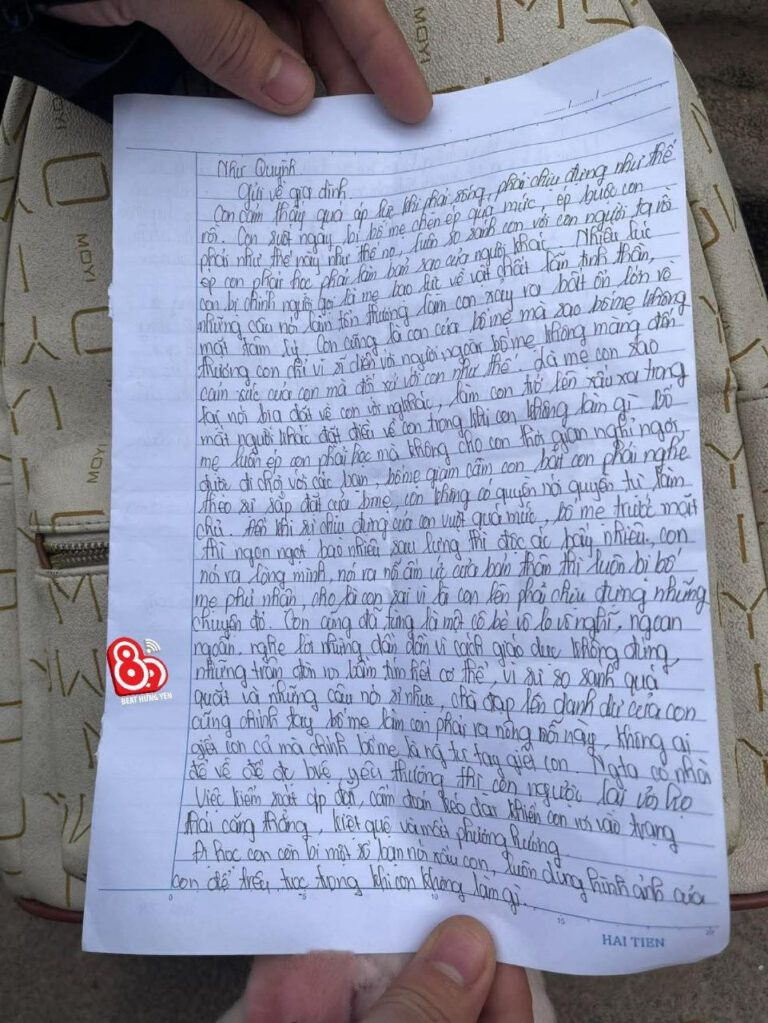 Như Quỳnh
Gửi về gia đình
Con cảm thấy quá áp lực khi phải sống, phải chịu đựng như thế
rồi. Con suốt ngày bị bố mẹ chèn ép quá mức, ép buộc con
phải như thế này như thế nọ, luôn so sánh con với con người ta rồi
ép con phải học phải làm bản sao của người khác. Nhiều lúc
con bị chính người gọi là mẹ bạo lực về vật chất lẫn tinh thần,
những câu nói làm tổn thương làm con xảy ra bất ổn lớn về
mặt tâm lý. Con cũng là con của bố mẹ mà sao bố mẹ không
thương con chỉ vì sĩ diện với người ngoài bố mẹ không màng đến
cảm xúc của con mà đối xử với con như thế. Là mẹ con sao
lại nói bịa đặt về con với ngkhác, làm con trở lên xấu xa trong
mắt người khác đặt điều về con trong khi con không làm gì. Bố
mẹ luôn ép con phải học mà không cho con thời gian nghỉ ngơi,
được đi chơi với các bạn, bố mẹ giam cầm con bắt con phải nghe
theo sự sắp đặt của bmẹ, con không có quyền nói quyền tự làm
chủ. Đến khi sự chịu đựng của con vượt quá mức, bố mẹ trước mặt
thì ngon ngọt bao nhiêu sau lưng thì độc ác bấy nhiêu, con
nói ra lòng mình, nói ra nỗi ấm ức của bản thân thì luôn bị bố
mẹ phủ nhận, cho là con sai vì là con lên phải chịu đựng những
chuyện đó. Con cũng đã từng là một cô bé vô lo vô nghĩ, ngoan
ngoãn, nghe lời nhưng dần dần vì cách giáo dục không đúng,
những trận đòn roi bầm tím hết cơ thể, vì sự so sánh quá
quắt và những câu nói sỉ nhục, chà đạp lên danh dự của con
cũng chính tay bố mẹ làm con phải ra nông nỗi này, không ai
giết con cả mà chính bố mẹ là ng tự tay giết con. Ngta có nhà
để về để đc bvệ, yêu thương thì con ngược lại với họ
Việc kiểm soát áp đặt, cấm đoán kéo dài khiến con rơi vào trạng
thái căng thẳng, kiệt quệ và mất phương hướng
Đi học con còn bị một số bạn nói xấu con, luôn dùng hình ảnh của
con để trêu tọc trong khi con không làm gì.
0 5 10 15
HẢI TIẾN
MOYI
BEAT HƯNG YÊN